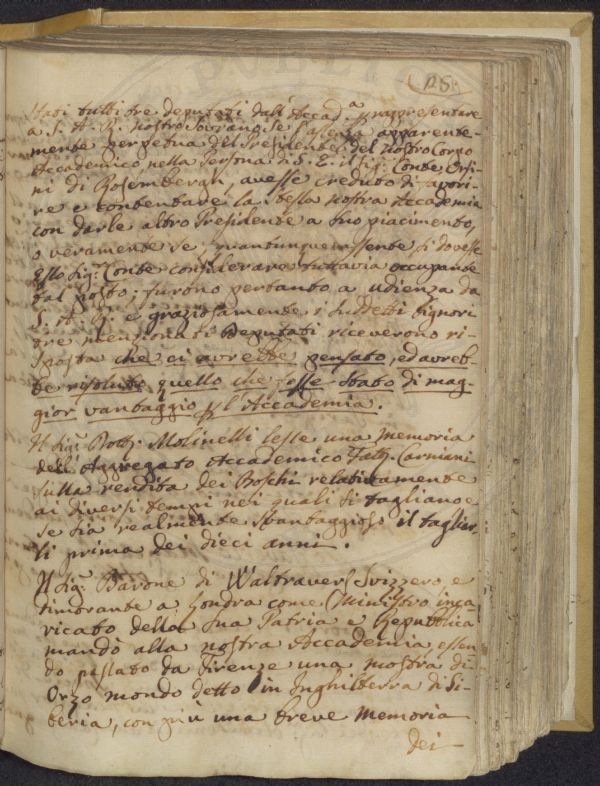 128.
Stati tutti tre deputati dall'Accad.a p rappresentare
a S. A. R. nostro Sovrano, se l'assenza apparente-
mente perpetua del Presidente del nostro Corpo
Accademico, nella Persona di S. E. il Sig.r Conte Orsi-
ni di Rosembergh, avesse creduto di
re e contentare la stessa nostra Accademia
con darle altro Presidente a suo piacimento,
o veramente se quantunque assente si dovesse
Sig.r Conte considerare tuttavia occupante
tal posto; furono pertanto a udienza da
S. A. R. e graziosamente i suddetti Signori
tre menzionati Deputati riceverono ri-
sposta che ci avrebbe pensato, ed avreb-
be risoluto quello che fosse stato di mag-
gior vantaggio p l'Accademia.
Il Sig.r Dott. Molinelli lesse una Memoria
dell'Aggregato Accademico Carniani
sulla rendita dei Boschi relativamente
ai diversi tempi nei quali si tagliano e
se sia realmente svantaggioso il taglier-
li prima dei dieci anni.
Il Sig.r Barone di Waltravers Svizzero e
dimorante a Londra come Ministro inca
ricato della sua Patria e Repubblica
mandò alla nostra Accademia, essen
do passato da Firenze una mostra di
Orzo mondo detto in Inghilterra di Si-
beria, con più una breve Memoria
dei
PUBLIC